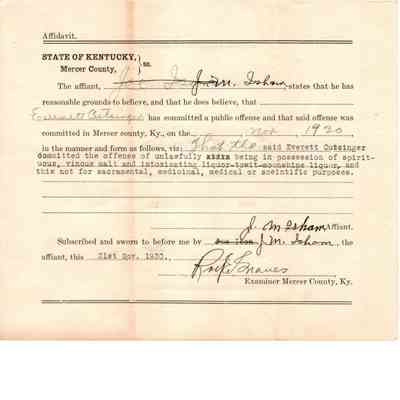 Affidavit.
STATE OF KENTUCKY,
Mercer County, } ss.
The affiant, J. M. Isham, states that he has
reasonable grounds to believe, and that he does believe, that
Everett Cutsinger has committed a public offense and that said offense was
committed in Mercer county, Ky., on the Nov , 1920,
in the manner and form as follows, viz: That the said Everett Cutsinger
committed the offense of unlawfully being in possession of spirit-
uous, vinous malt and intoxicating liquor-towit-moonshine liquor, and
this not for sacramental, medicinal, medical or sceintific purposes.
J. M Isham Affiant.
Subscribed and sworn to before me by J. M. Isham, the
affiant, this 21st Nov. 1920.,
Graves
Examiner Mercer County, Ky.